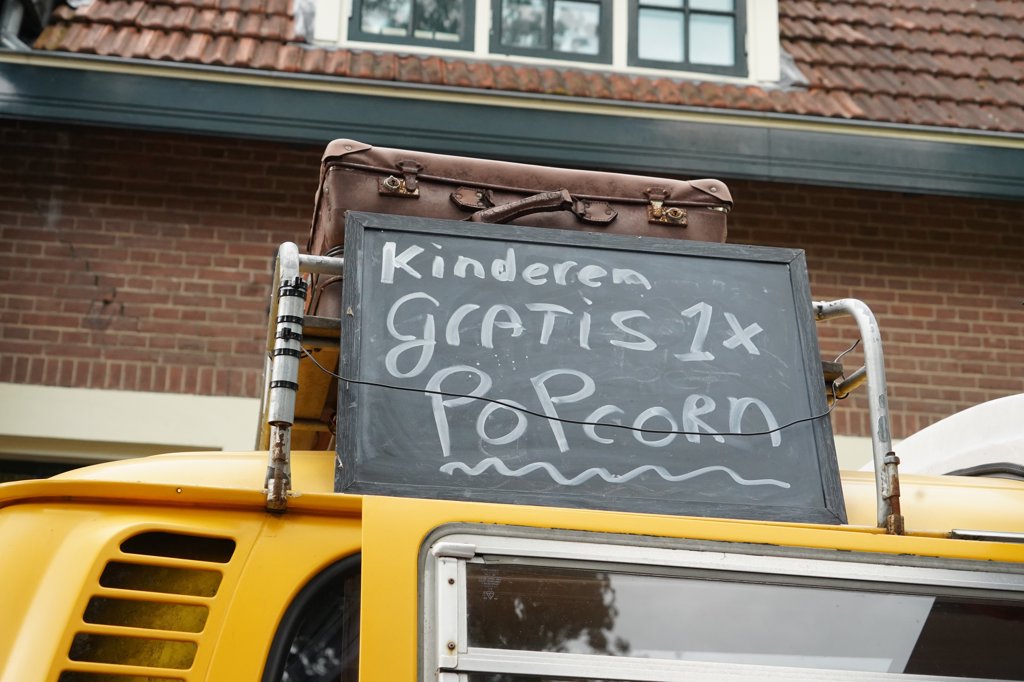 Kinderen
GrATiS 1x
PoPcorn